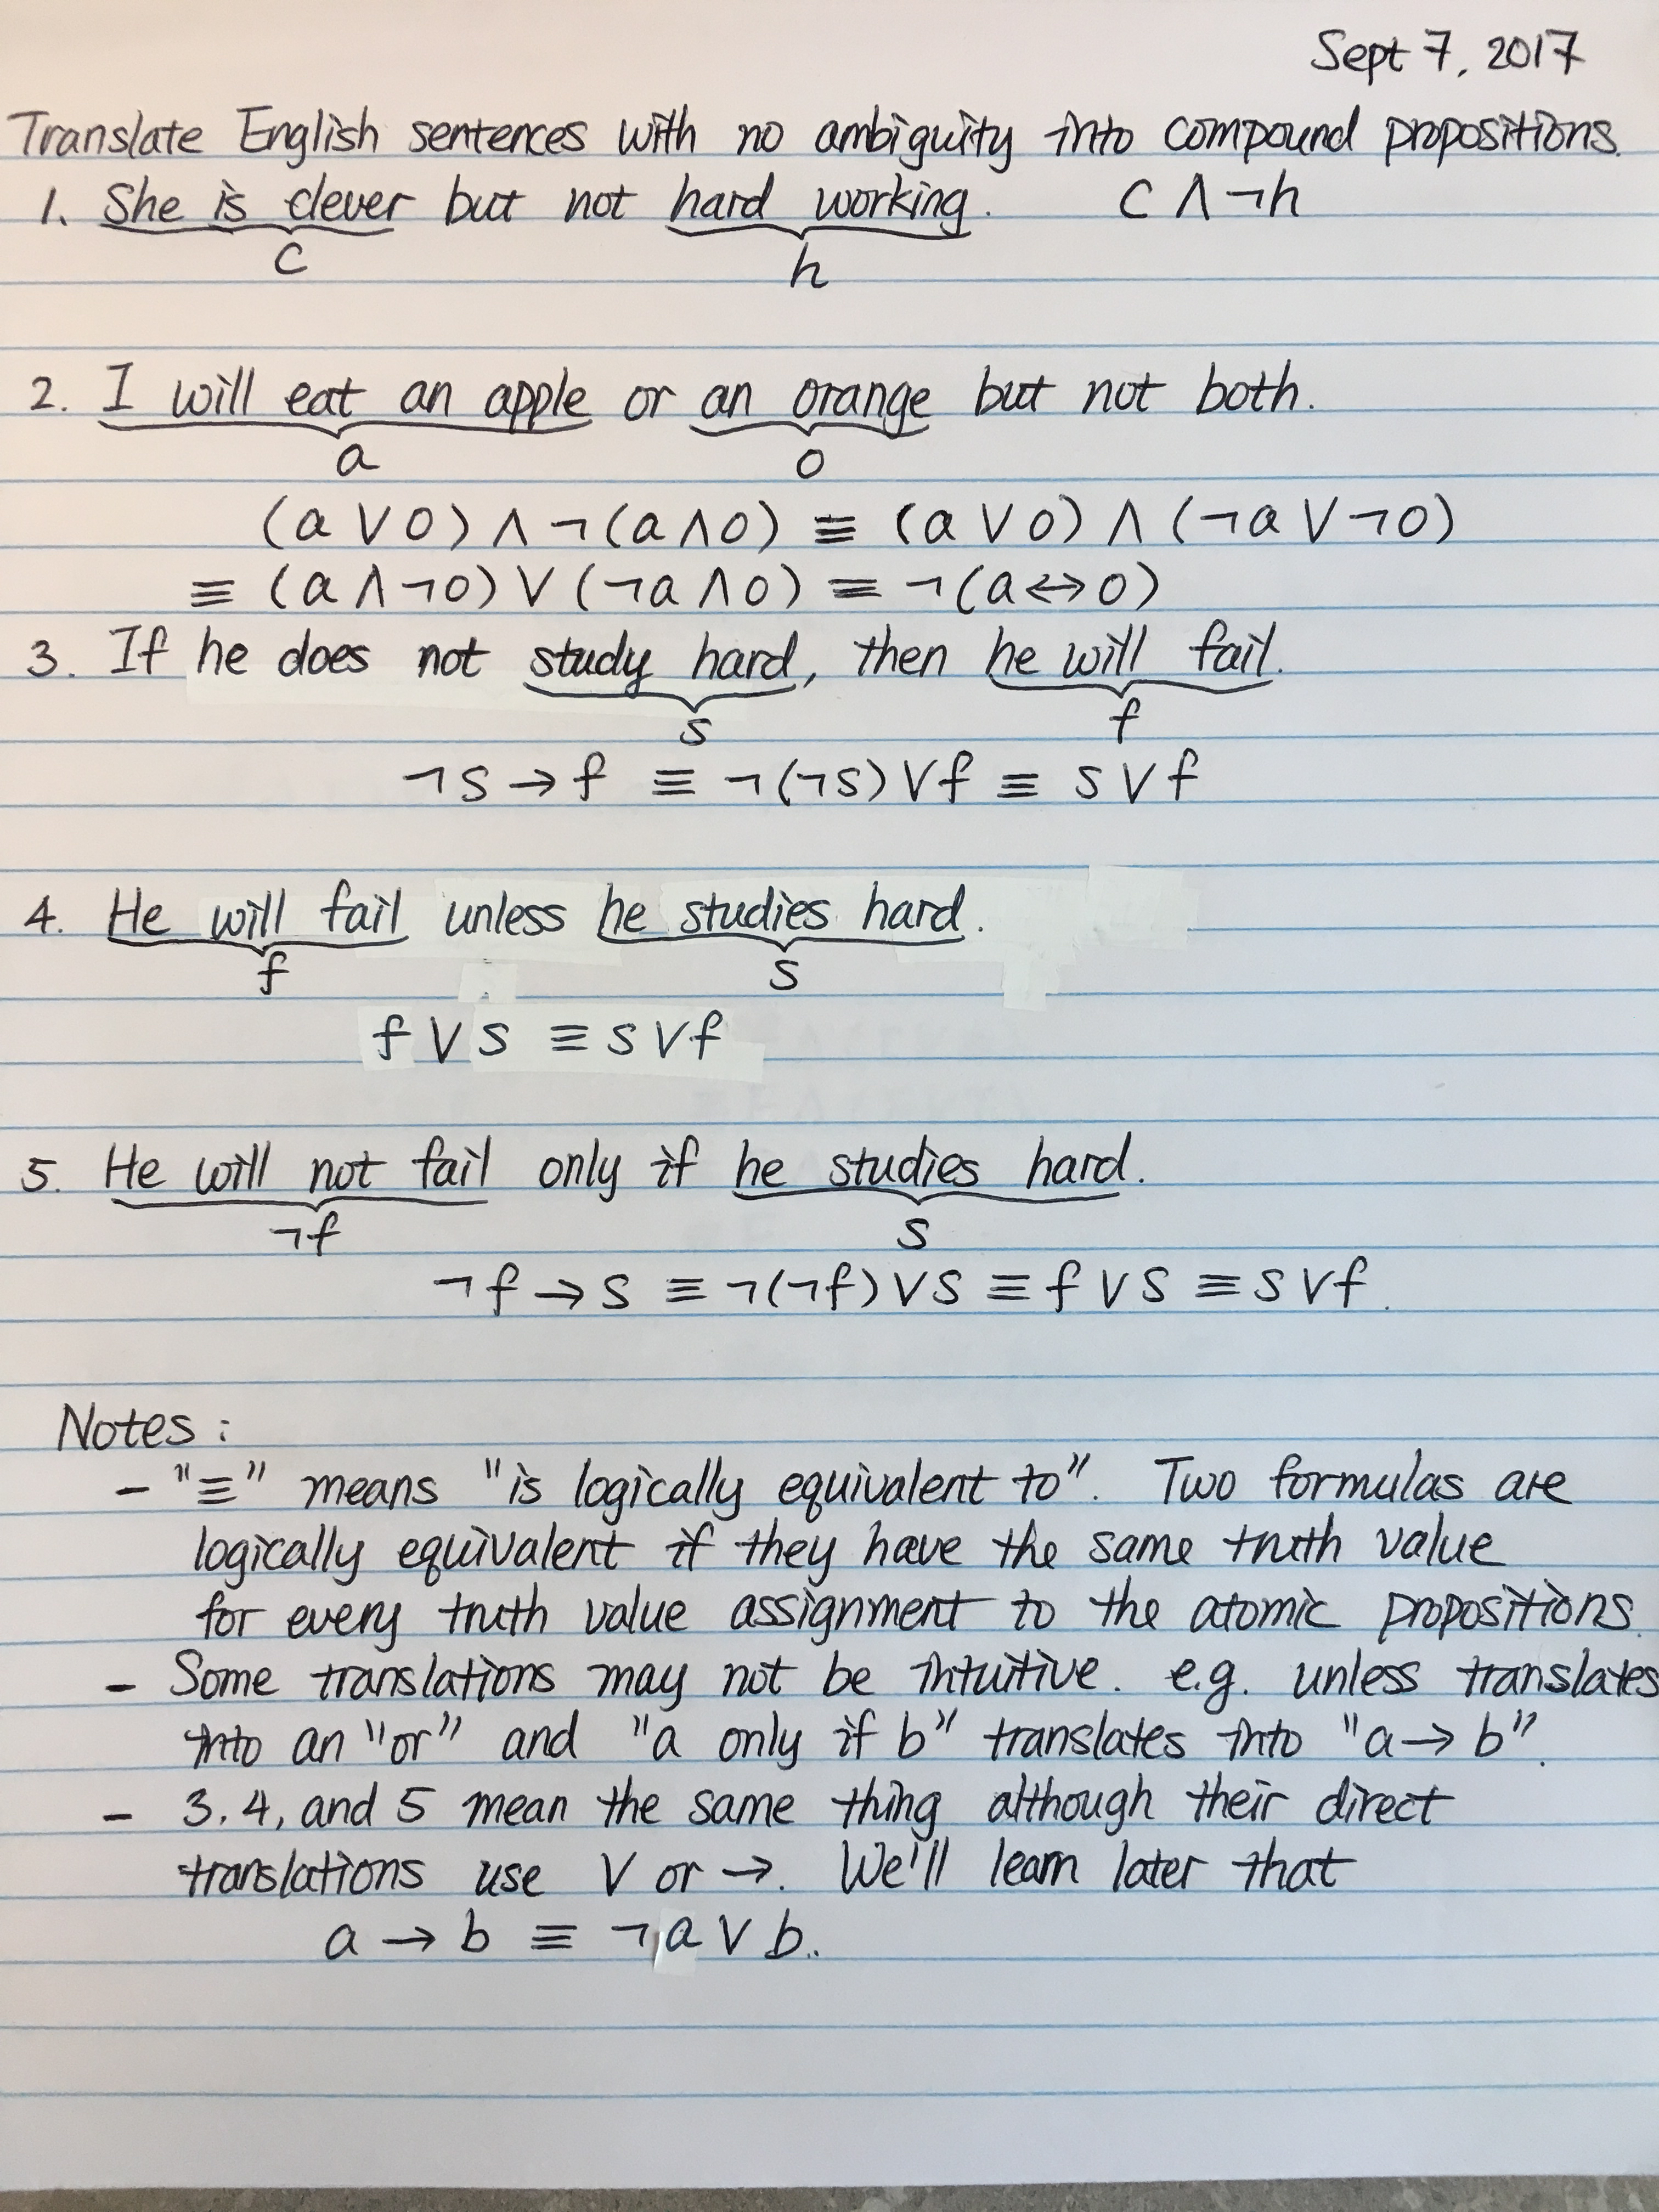 Sept 7, 2017
Translate English sentences with no ambiguity into compound propositions.
1. She is clever but not hard working. C ∧ ¬h
c h
2. I will eat an apple or an orange but not both.
a o
(a ∨ o) ∧ ¬(a ∧ o) ≡ (a ∨ o) ∧ (¬a ∨ ¬o)
≡ (a ∧ ¬o) ∨ (¬a ∧ o) ≡ ¬(a ↔ o)
3. If he does not study hard, then he will fail.
s f
¬s → f ≡ ¬(¬s) ∨ f ≡ s ∨ f
4. He will fail unless he studies hard.
f s
f ∨ s ≡ s ∨ f
5. He will not fail only if he studies hard.
¬f s
¬f → s ≡ ¬(¬f) ∨ s ≡ f ∨ s ≡ s ∨ f.
Notes:
- "≡" means "is logically equivalent to". Two formulas are
logically equivalent if they have the same truth value
for every truth value assignment to the atomic propositions.
- Some translations may not be intuitive. e.g. unless translates
into an "or" and "a only if b" translates into "a → b".
- 3.4, and 5 mean the same thing although their direct
translations use ∨ or →. We'll learn later that
a → b ≡ ¬a ∨ b..